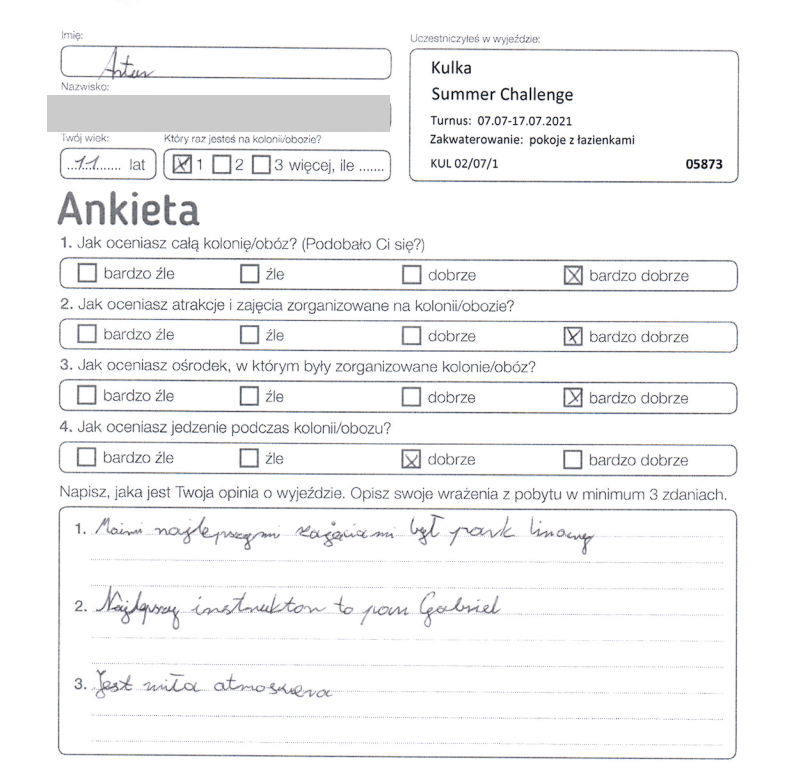 Imię:
Artur
Nazwisko:
Twój wiek:
...11...... lat
Który raz jesteś na kolonii/obozie?
1 2 3 więcej, ile .......
Uczestniczyłeś w wyjeździe:
Kulka
Summer Challenge
Turnus: 07.07-17.07.2021
Zakwaterowanie: pokoje z łazienkami
KUL 02/07/1 05873
Ankieta
1. Jak oceniasz całą kolonię/obóz? (Podobało Ci się?)
bardzo źle źle dobrze bardzo dobrze
2. Jak oceniasz atrakcje i zajęcia zorganizowane na kolonii/obozie?
bardzo źle źle dobrze bardzo dobrze
3. Jak oceniasz ośrodek, w którym były zorganizowane kolonie/obóz?
bardzo źle źle dobrze bardzo dobrze
4. Jak oceniasz jedzenie podczas kolonii/obozu?
bardzo źle źle dobrze bardzo dobrze
Napisz, jaka jest Twoja opinia o wyjeździe. Opisz swoje wrażenia z pobytu w minimum 3 zdaniach.
1. najlepszymi był park linowy
2. Najlepszy instruktor to pan Gabriel
3. Jest miła